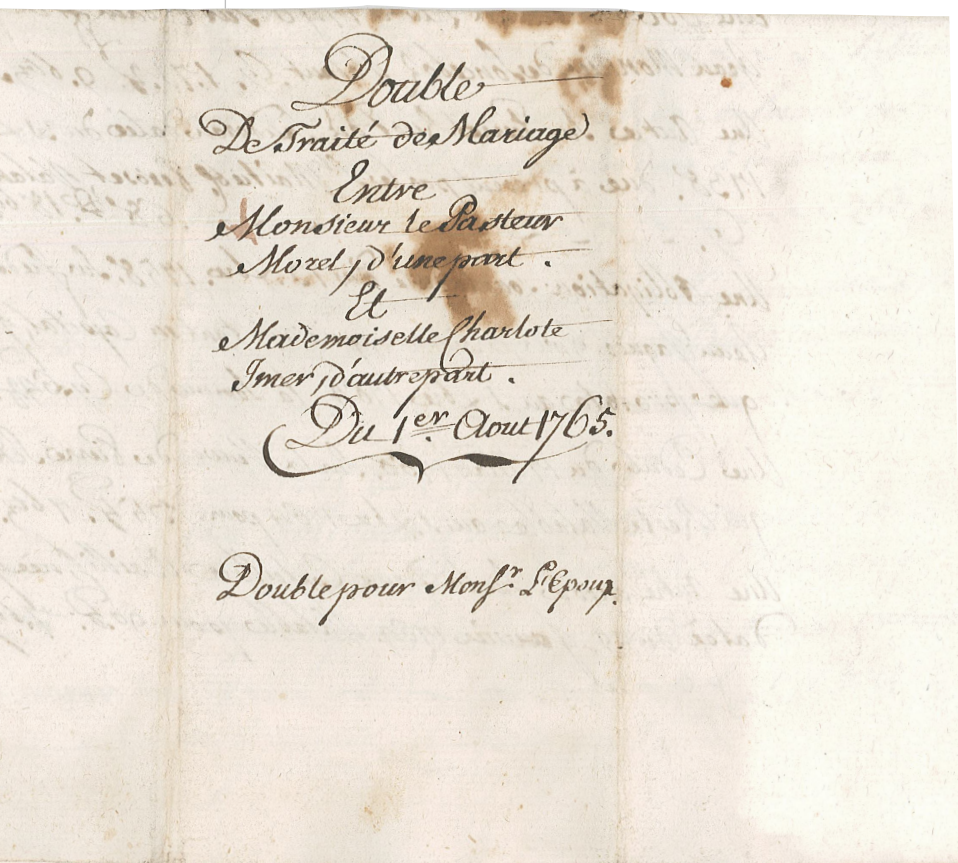 Double
De Traité de Mariage
Entre
Monsieur le Pasteur
Morel, d'une part.
Et
Mademoiselle Charlote
Imer, d'autre part.
Du 1er. Aout 1765.
Double pour Monsr. L'Epoux.